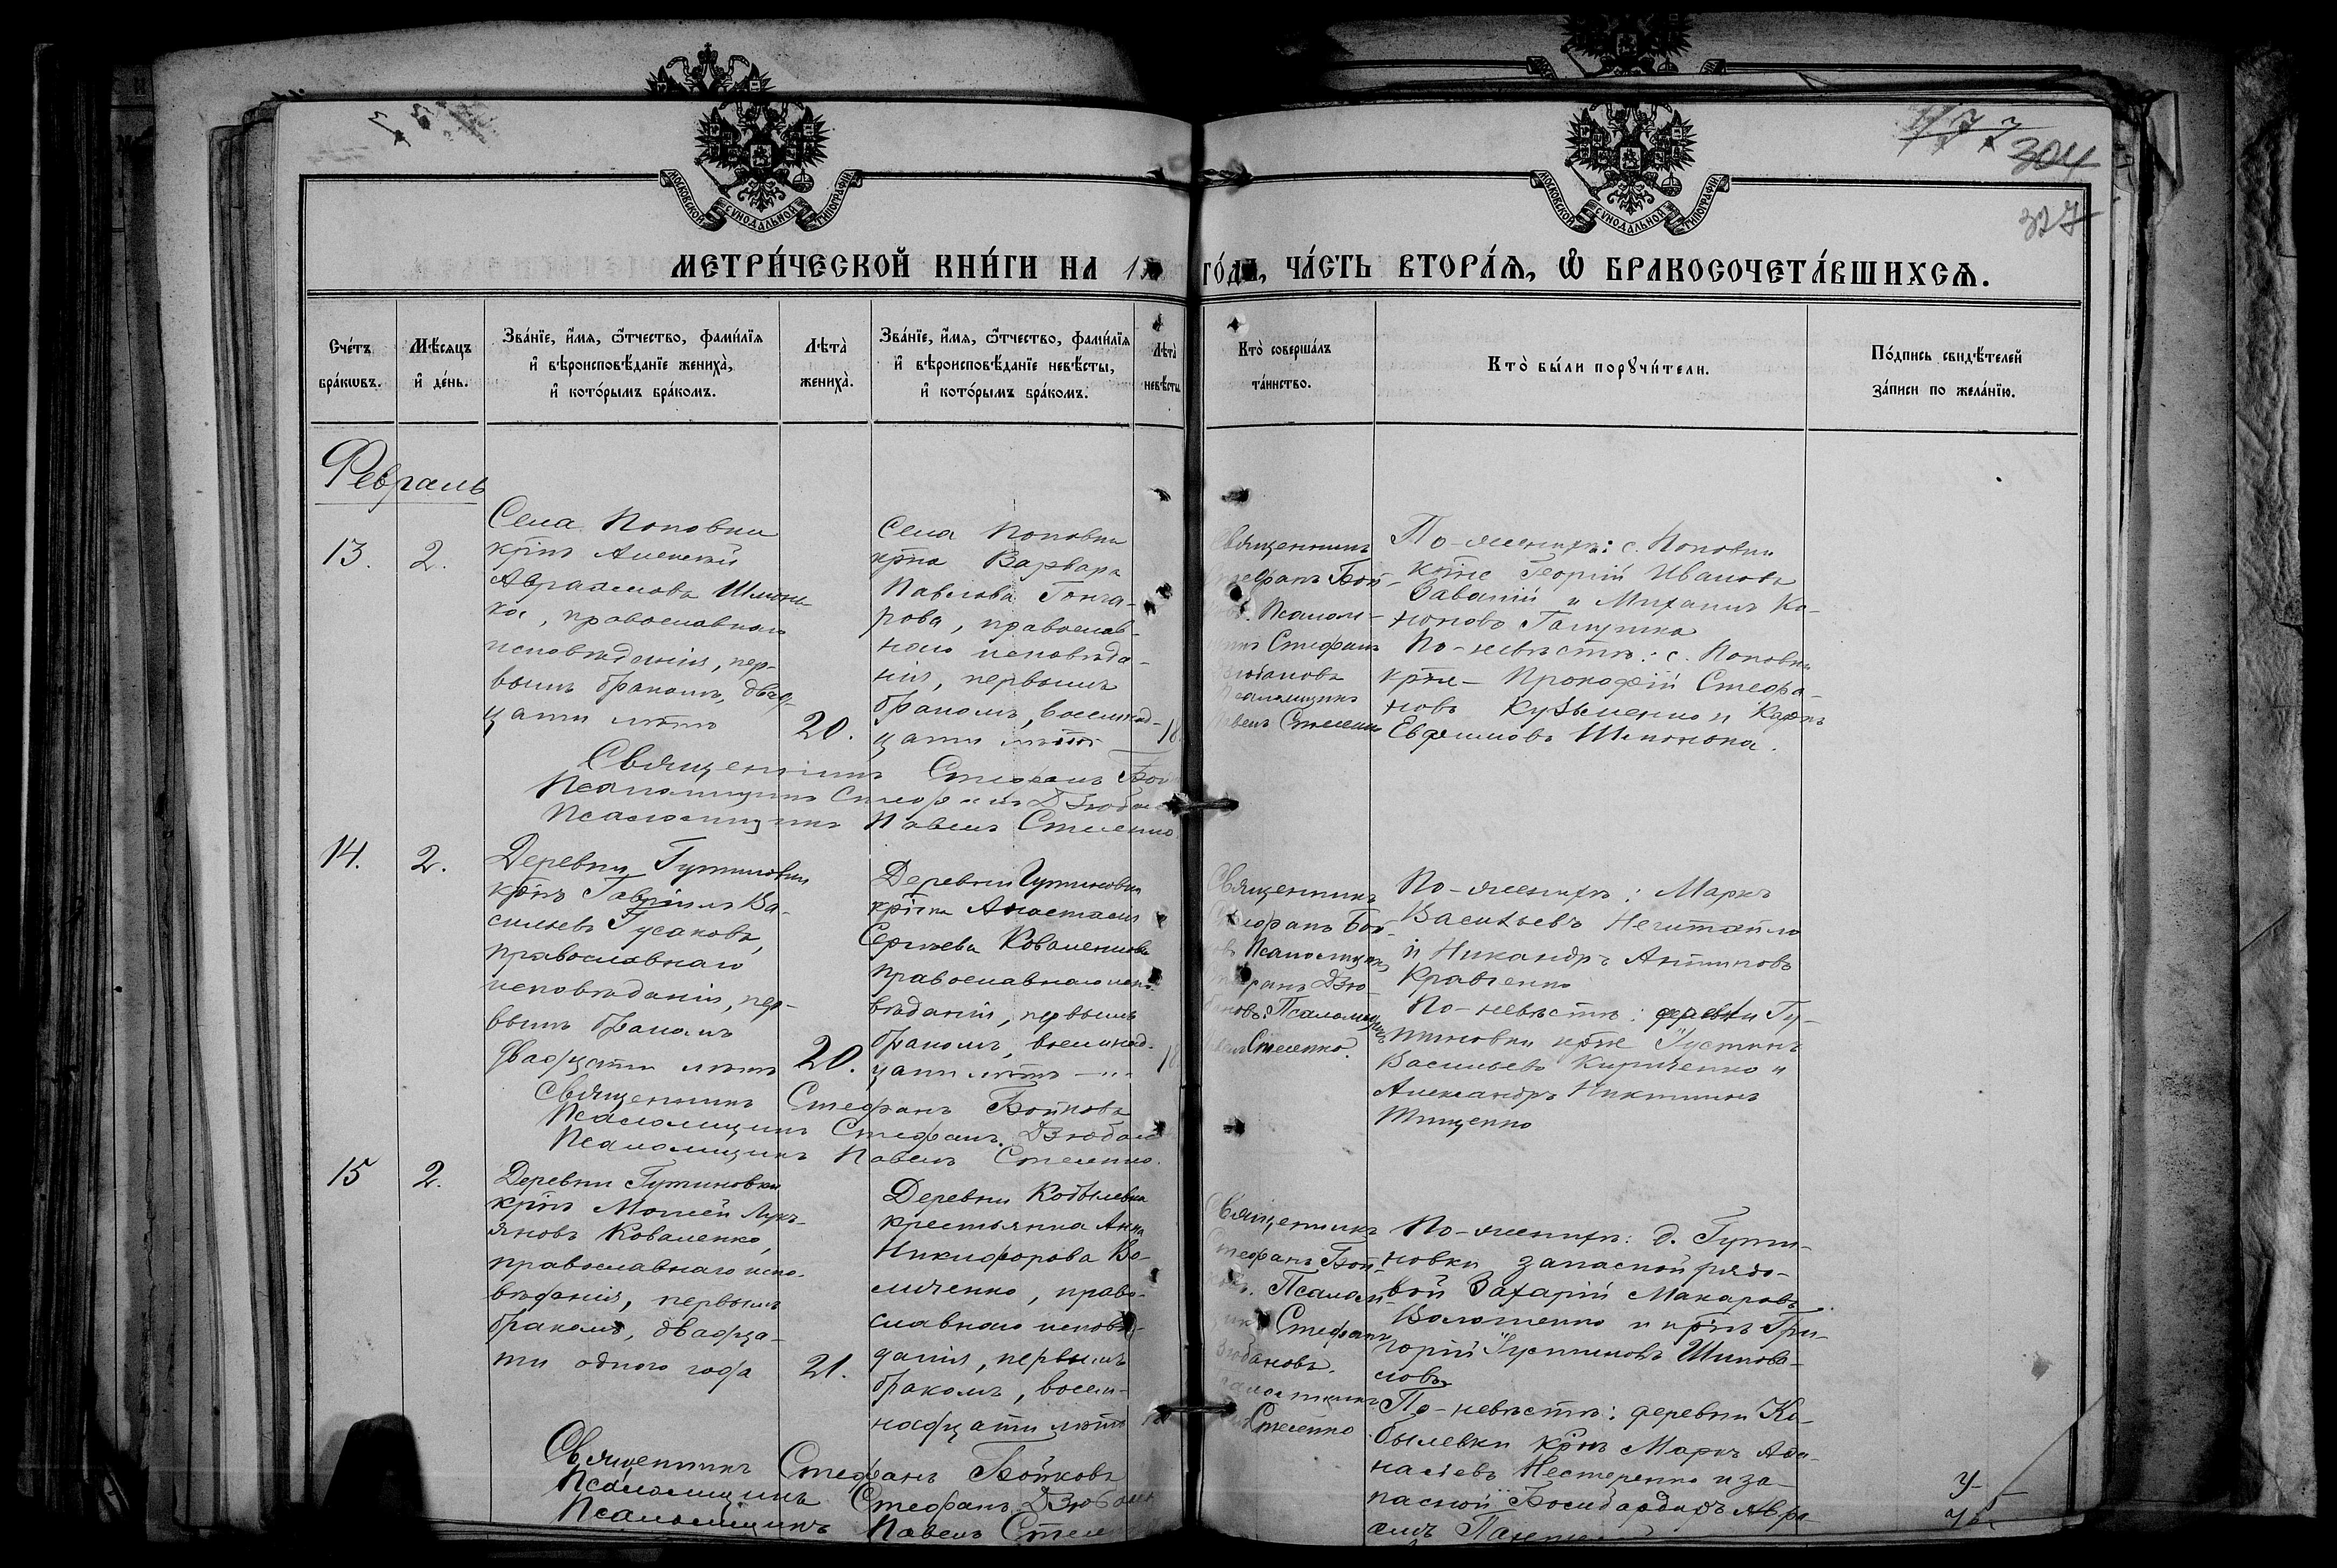 МОСКОВСКОЙ СУНОДАЛЬНОЙ ТИПОГРАФІИ
МОСКОВСКОЙ СУНОДАЛЬНОЙ ТИПОГРАФІИ
177
304
327
МЕТРИ́ЧЕСКОЙ КНИ́ГИ НА
ГО́ДА, ЧА́СТЬ ВТОРА́Ѧ, Ѽ БРАКОСОЧЕТА́ВШИХСѦ.
Сче́тъ
бра́кѡвъ.
Мѣ́сѧцъ
и҆ де́нь.
Зва́нїе, и҆́мѧ, ѻ҆́тчество, фами́лїѧ
и҆ вѣроисповѣ́данїе жениха̀,
и҆ кото́рымъ бра́комъ.
Лѣта̀
жениха̀.
Зва́нїе, и҆́мѧ, ѻ҆́тчество, фами́лїѧ
и҆ вѣроисповѣ́данїе невѣ́сты,
и҆ кото́рымъ бра́комъ.
Лѣта̀
невѣ́сты
Кто̀ соверша́лъ
та́инство.
Кто̀ бы́ли порꙋчи́тели.
По́дпись свидѣ́телей
за́писи по жела́нїю.
Февраль
13.
2.
Села Поповки
крнъ Алексѣй
Аврамовъ Шлюнь-
ка, православнаго
исповѣданія, пер-
вымъ бракомъ, двад-
цати лѣтъ
20.
Села Поповки
крнка Варвара
Павлова Гонча-
рова, православ-
наго исповѣда-
нія, первымъ
бракомъ, восемнад-
цати лѣтъ
18
Священникъ
Стефанъ Бой-
Псалом-
Стефанъ
Дзюбановъ
Псаломщикъ
Павелъ Стеленко
По-женихѣ: с. Поповки
крне Георгій Ивановъ
и Михаилъ Ко-
ноновъ Галушка
По-невѣстѣ: с. Поповки
крне Прокофій Стефа-
новъ Кузьменко и Карпъ
Евфимовъ
Священникъ Стефанъ Бой
Псаломщикъ Стефанъ Дзюбан
Псаломщикъ Павелъ Стеленко
14.
2.
Деревни Гутиновки
крнъ Гавріилъ Ва-
сильевъ Гусаковъ,
православнаго
исповѣданія, пер-
вымъ бракомъ
двадцати лѣтъ
20.
Деревни Гутиновки
крнка Анастасія
Сергѣева Коваленкова
православнаго испо-
вѣданія, первымъ
бракомъ, восемнад-
цати лѣтъ
18
Священникъ
Стефанъ Бой-
Псаломщикъ
Стефанъ Дзю-
бановъ. Псаломщикъ
Стеленко.
По-женихѣ: Маркъ
Васильевъ Нечитайло
и Никандръ Антиповъ
Кравченко
По-невѣстѣ: деревни Гу-
тиновки крне Іустинъ
Васильевъ Кириченко и
Александръ Никитинъ
Тищенко
Священникъ Стефанъ Бойковъ
Псаломщикъ Стефанъ Дзюбан
Псаломщикъ Павелъ Стеленко.
15
2.
Деревни Гутиновки
крнъ Моисей Лукь-
яновъ Коваленко,
православнаго испо-
вѣданія, первымъ
бракомъ, двадца-
ти одного года
21.
Деревни Кобылевки
крестьянка Анна
Никифорова Во-
личенко, право-
славнаго исповѣ-
данія, первымъ
бракомъ, восем-
надцати лѣтъ
18
Священникъ
Стефанъ Бой-
Псалом-
Стефанъ
Дзюбановъ.
Псаломщикъ
Стеленко
По-женихѣ: д. Гути-
новки запасной рядо-
вой Захарій Макаровъ
Волошенко и крнъ Гри-
горій Іустиновъ Шипова-
ловъ
По-невѣстѣ: деревни Ко-
былевки крнъ Маркъ Афа-
насіевъ Нестеренко и за-
пасной Бомбардиръ Авра-
амъ
Священникъ Стефанъ Бойковъ
Псаломщикъ Стефанъ Дзюбан
Псаломщикъ Павелъ Стелен